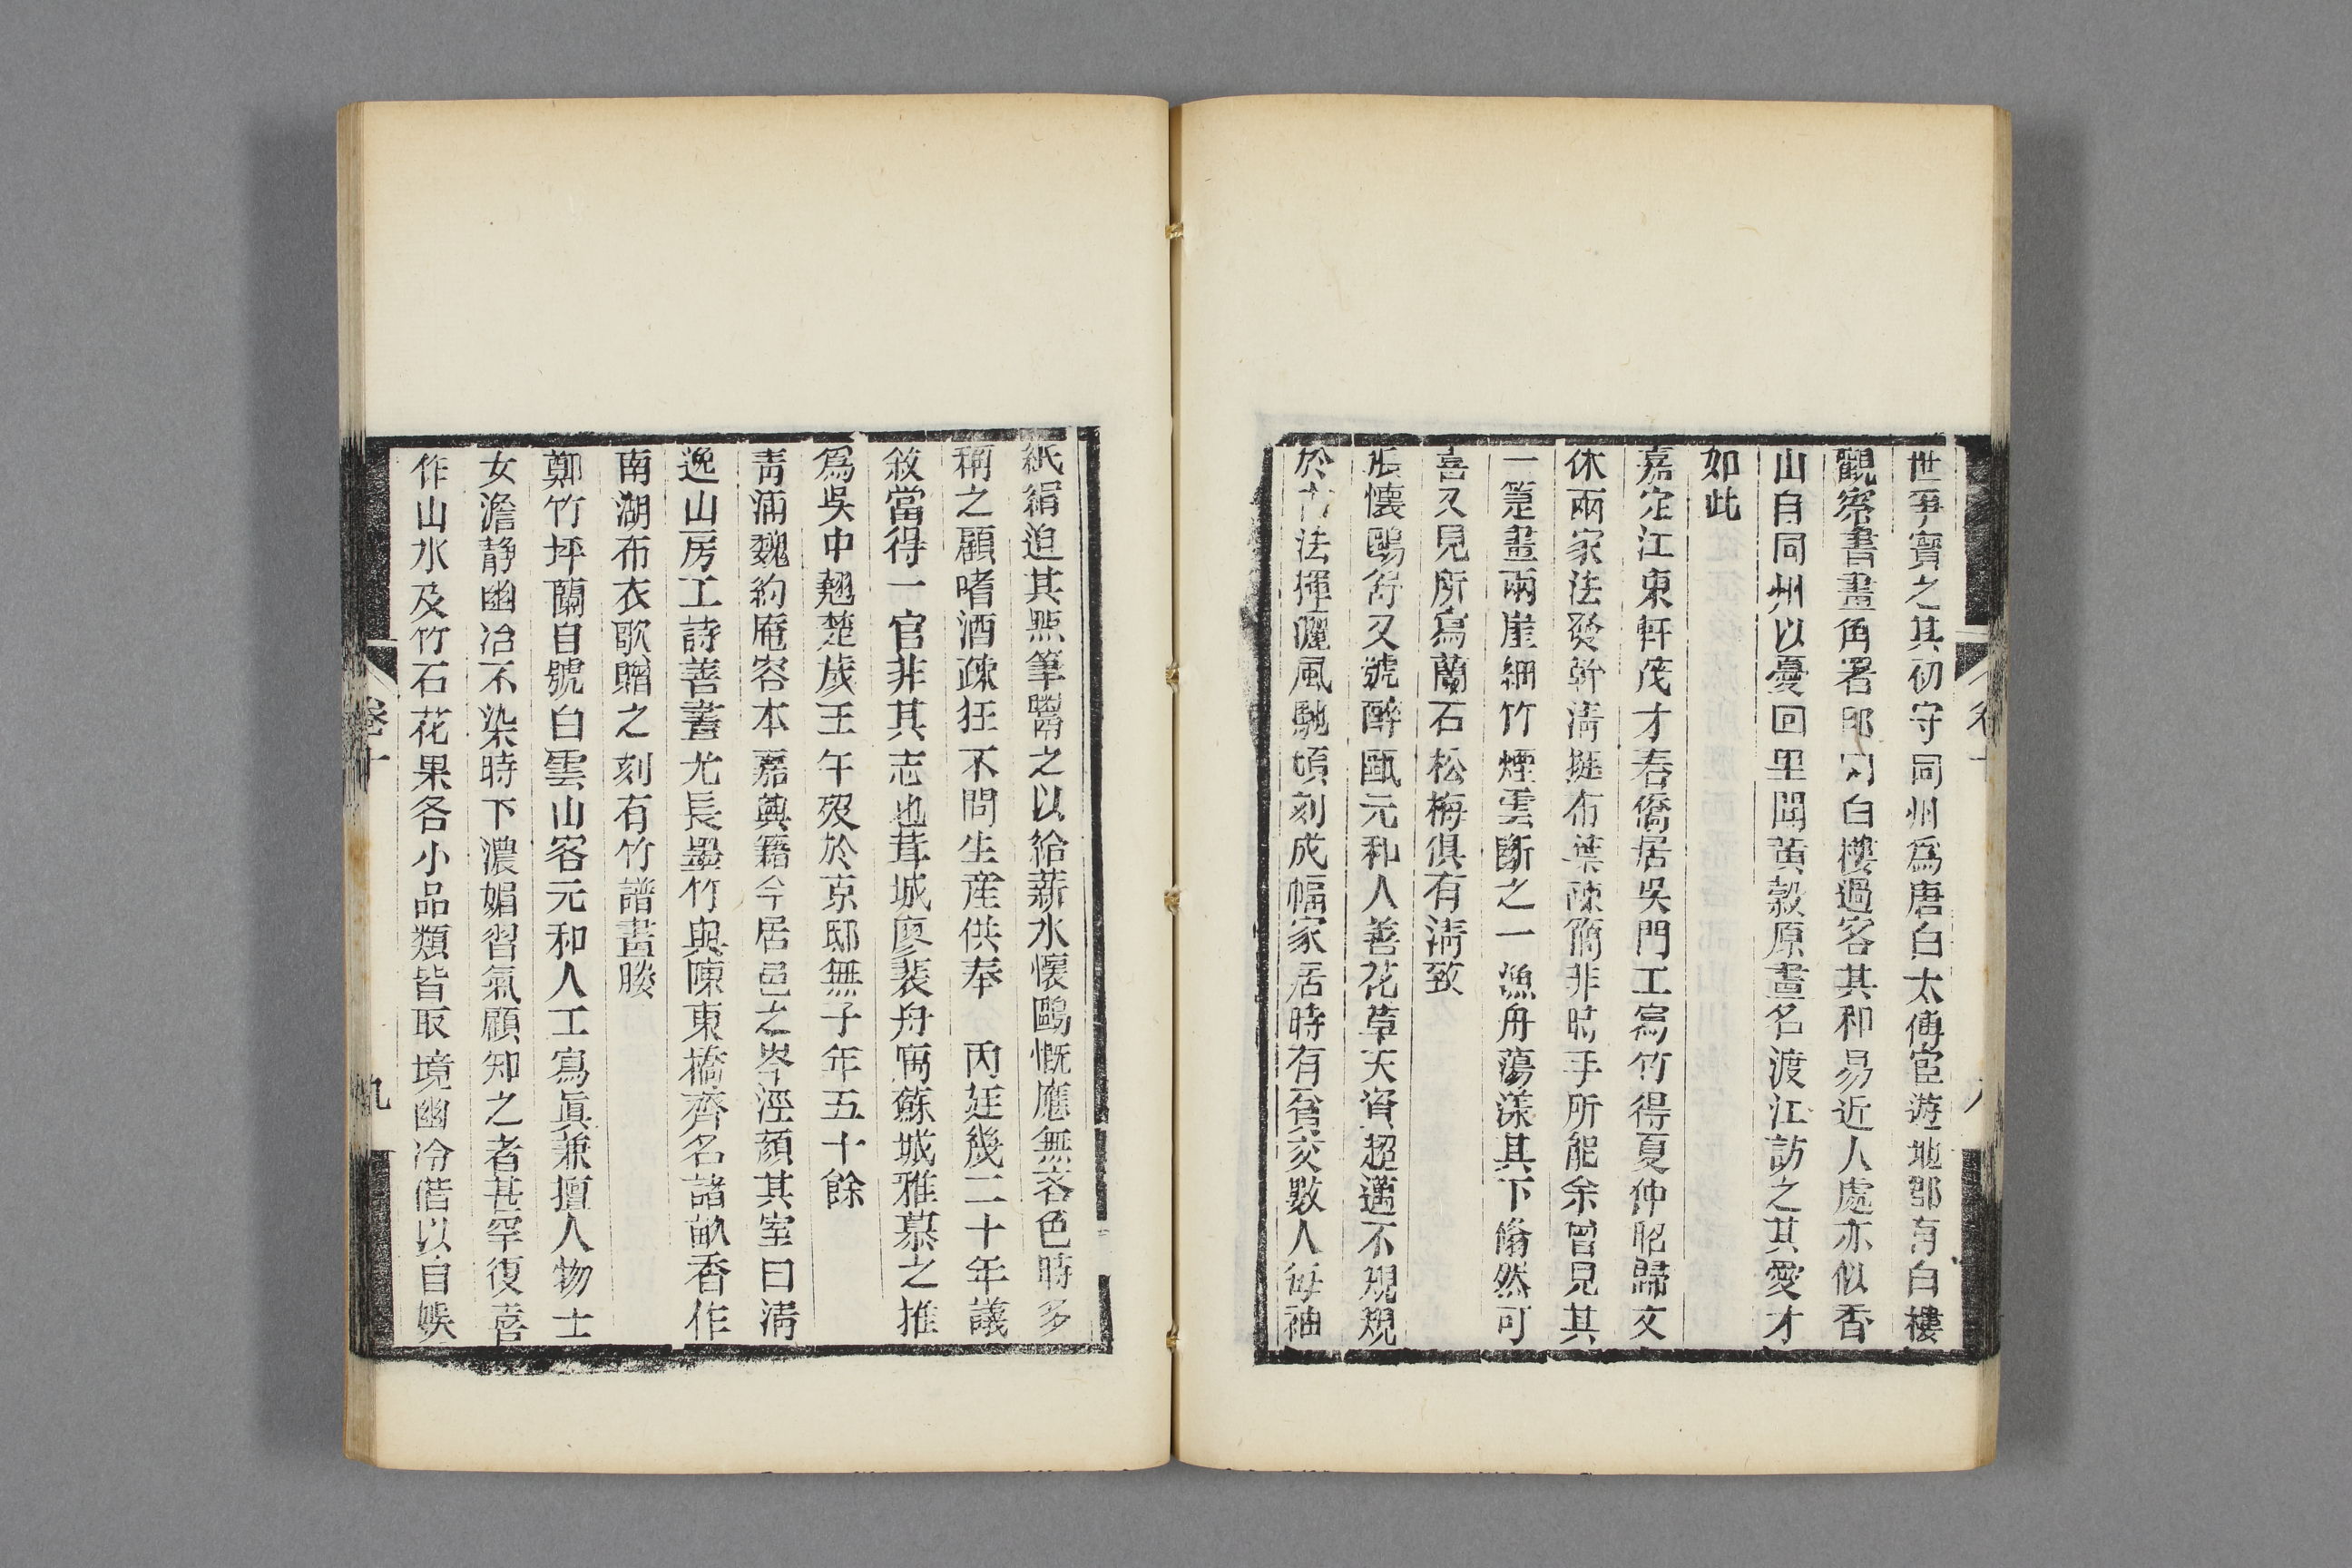 世爭寶之其初守同州爲唐白太傅宦遊地郡有白樓
觀察書畫角署邸同白樓過客其和易近人處亦似香
山自同州以憂回里聞黃穀原畫名渡江訪之其愛才
如此
嘉定江東軒茂才春僑居吳門工寫竹得夏仲昭歸文
休兩家法發幹淸挺布葉疎簡非時手所能余曾見其
一箑畫兩崖細竹煙雲斷之一漁舟蕩漾其下翛然可
喜又見所爲蘭石松梅俱有淸致
張懷鷗舒又號醉甌元和人善花草天資超邁不規規
於古法揮灑風馳頃刻成幅家居時有貧交數人每袖
卷十
八
紙絹迫其點筆鬻之以給薪水懷鷗慨應無吝色時多
稱之顧嗜酒疎狂不問生產供奉 丙廷幾二十年議
敘當得一官非其志也茸城廖裴舟寓蘇城雅慕之推
爲吳中翹楚歲壬午歿於京邸無子年五十餘
靑浦魏約庵容本嘉興籍今居邑之岑涇顏其室曰淸
逸山房工詩善畫尤長墨竹與陳東橋齊名諸畝香作
南湖布衣歌贈之刻有竹譜畫賸
鄭竹坪蘭自號白雲山客元和人工寫眞兼擅人物士
女澹靜幽冶不染時下濃媚習氣顧知之者甚罕復喜
作山水及竹石花果各小品類皆取境幽冷偕以自娛
卷十
九